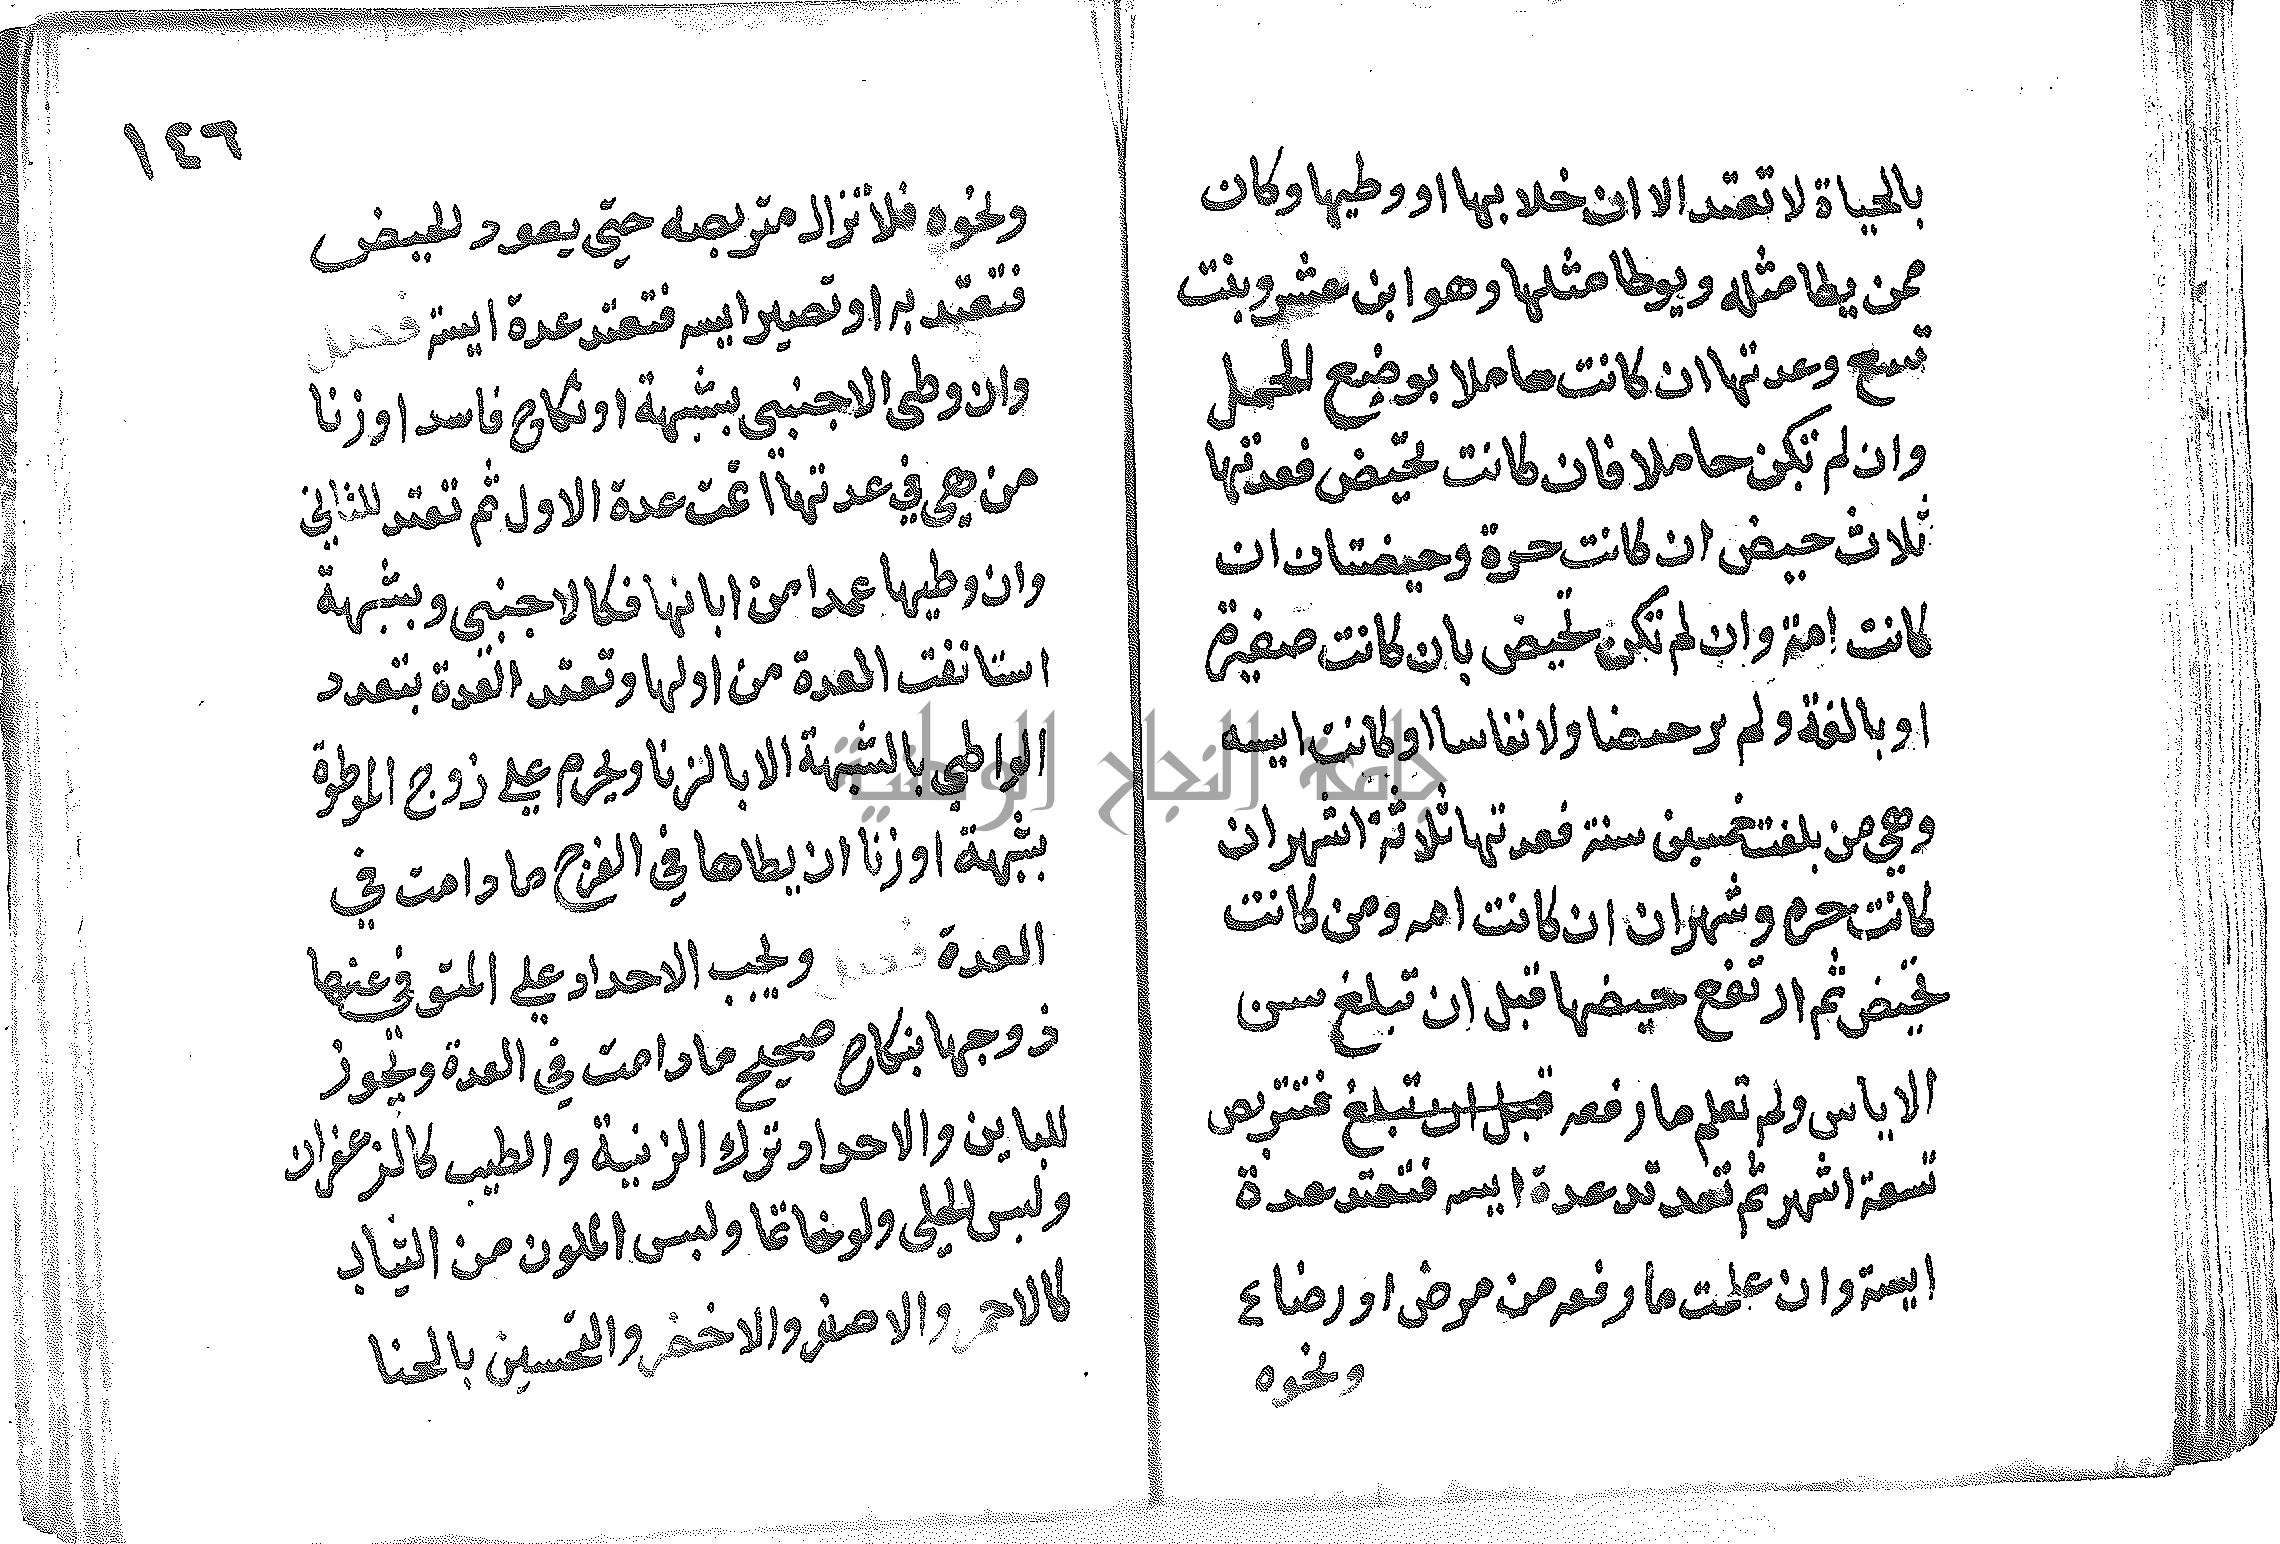 بالحياة لا تعتد الا ان خلا بها او وطيها وكان
ممن يطا مثله ويوطا مثلها وهو ابن عشر وبنت
تسع وعدتها ان كانت حاملا بوضع الحمل
وان لم تكن حاملا فان كانت تحيض فعدتها
ثلاث حيض ان كانت حرة وحيضتان ان
كانت امة وان لم تكن تحيض بان كانت صغيرة
او بالغة ولم تر حيضا ولا نفاسا او كانت ايسه
وهي من بلغت خمسين سنة فعدتها ثلاثة اشهر ان
كانت حره وشهران ان كانت امه ومن كانت
تحيض ثم ارتفع حيضها قبل ان تبلغ سن
الاياس ولم تعلم ما رفعه قبل ان تبلغ فتتربص
تسعة اشهر ثم تعتد عدة ايسه فتعتد عدة
ايسة وان علمت ما رفعه من مرض او رضاع
ونحوه
١٤٦
ونحوه فلا تزال متربصه حتى يعود الحيض
فتعتد به او تصير ايسه فتعتد عدة ايسة فصل
وان وطى الاجنبي بشبهة او نكاح فاسد او زنا
من هي في عدتها اتمت عدة الاول ثم تعتد للثاني
وان وطيها عمدا من ابانها فكالاجنبي وبشبهة
استانفت العدة من اولها وتعتد العدة بتعدد
الواطي بالشبهة الا بالزنا ويحرم على زوج الموطوة
بشبهة او زنا ان يطاها في الفرج ما دامت في
العدة فصل ويجب الاحداد على المتوفي عنها
زوجها بنكاح صحيح ما دامت في العدة ويجوز
للباين والاحداد ترك الزينة والطيب كالزعفران
ولبس الحلي ولو خاتما ولبس الملون من الثياب
كالاحمر والاصفر والاخضر والتحسين بالحنا
جامعة النجاح الوطنية